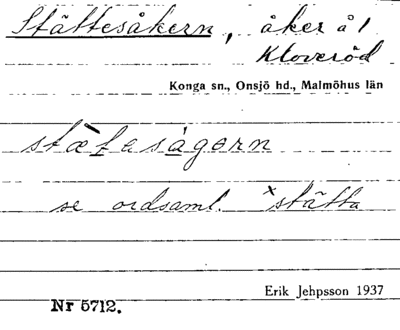 Stättesåkern, åker å 1
Kloveröd
Konga sn., Onsjö hd., Malmöhus län
stæ̀tesågərn
se ordsaml. ˣstätta
Erik Jehpsson 1937
Nr 5712.